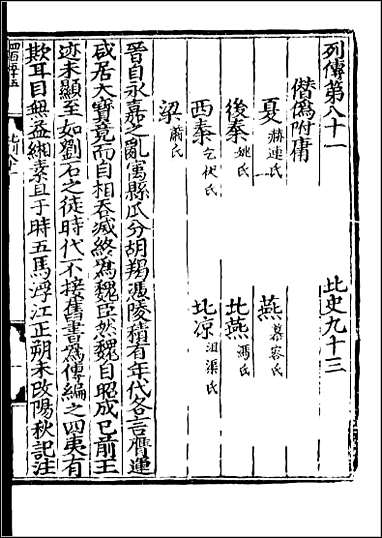 列傳第八十一　北史九十三
僣僞附庸
夏赫連氏　燕慕容氏
後秦姚氏　北燕馮氏
西秦乞伏氏　北凉沮渠氏
梁蕭氏
晉自永嘉之亂㝢縣瓜分胡羯憑陵積有年代各言膺運
咸居大寶竟而自相吞滅終爲魏臣然魏自昭成已前王
迹未顯至如劉石之徒時代不接舊書爲傳編之四夷有
欺耳目無益緗素且于時五馬浮江正朔未改陽秋記注